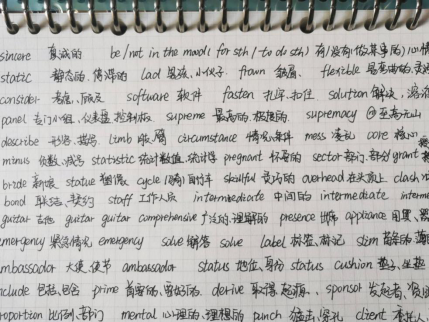 sincere 真诚的 be/not in the mood (for sth / to do sth) 有/没有(做某事的)心情
static 静态的, 停滞的 lad 男孩, 小伙子 frown 皱眉 flexible
consider 考虑, 顾及 software 软件 fasten 扎牢, 扣住 solution 解决, 溶液
panel 专门小组, 仪表盘, 控制板 supreme 最高的, 极度的 supremacy
describe 形容, 描写 limb 肢, 臂 circumstance 情况, 条件 mess 凌乱 core 核心
minus 负数, 减号 statistic 统计数值, 统计学 pregnant 怀孕的 sector 部门, 部分 grant
bride 新娘 statue 塑像 cycle (骑)自行车 skillful 灵巧的 overhead 在头顶上 clash
bond 联结, 契约 staff 工作人员 intermediate 中间的 intermediate
guitar 吉他 guitar guitar comprehensive 广泛的, 理解的 presence 出席 appliance 用具
emergency 紧急情况 emergency solve 解答 solve label 标签, 标记 slim 苗条的
ambassador 大使, 使节 ambassador status 地位, 身份 status cushion 垫子, 坐垫
include 包括, 包含 prime 首要的, 最好的 derive 取得, 起源 sponsor 发起者
proportion 比例, 部门 mental 心理的, 理想的 punch 猛击 client